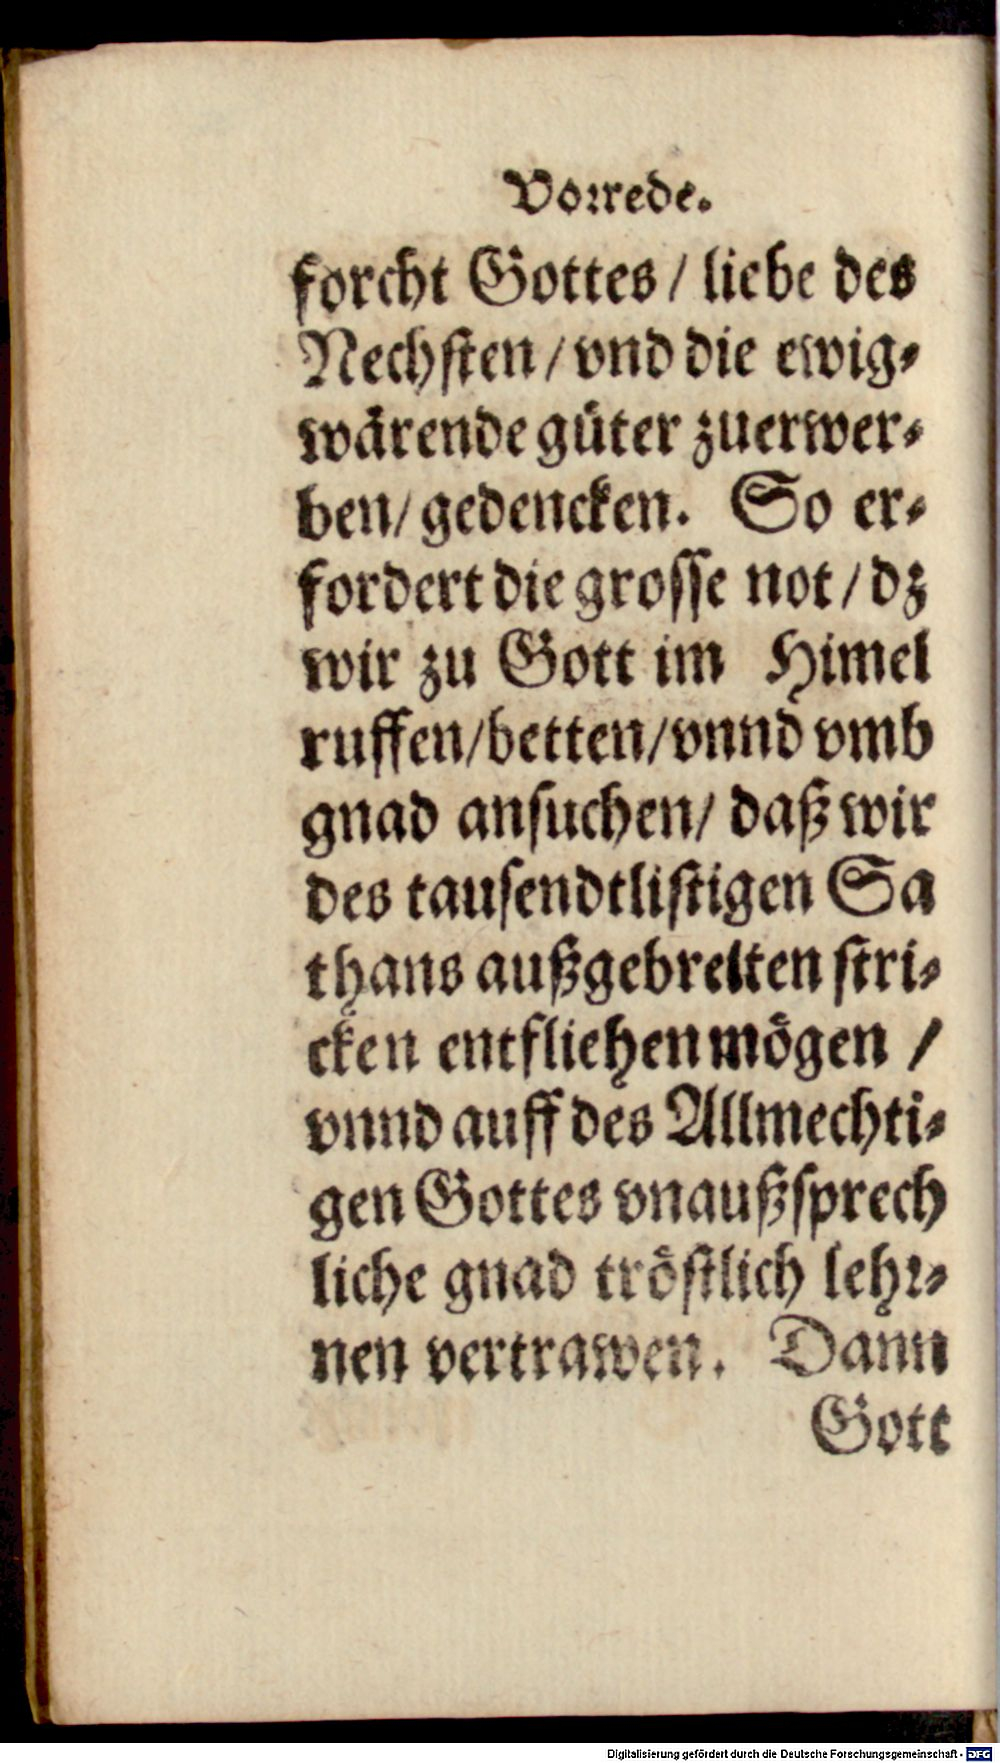 Vorrede.
forcht Gottes / liebe des
Nechsten / vnd die ewig⸗
wärende güter zuerwer⸗
ben / gedencken. So er⸗
fordert die grosse not / dz
wir zu Gott im Himel
ruffen / betten / vnnd vmb
gnad ansuchen / daß wir
des tausendtlistigen Sa
thans außgebreiten stri⸗
cken entfliehen mögen /
vnnd auff des Allmechti⸗
gen Gottes vnaußsprech
liche gnad tröstlich lehr⸗
nen vertrawen. Dann
Gott
Digitalisierung gefördert durch die Deutsche Forschungsgemeinschaft - DFG